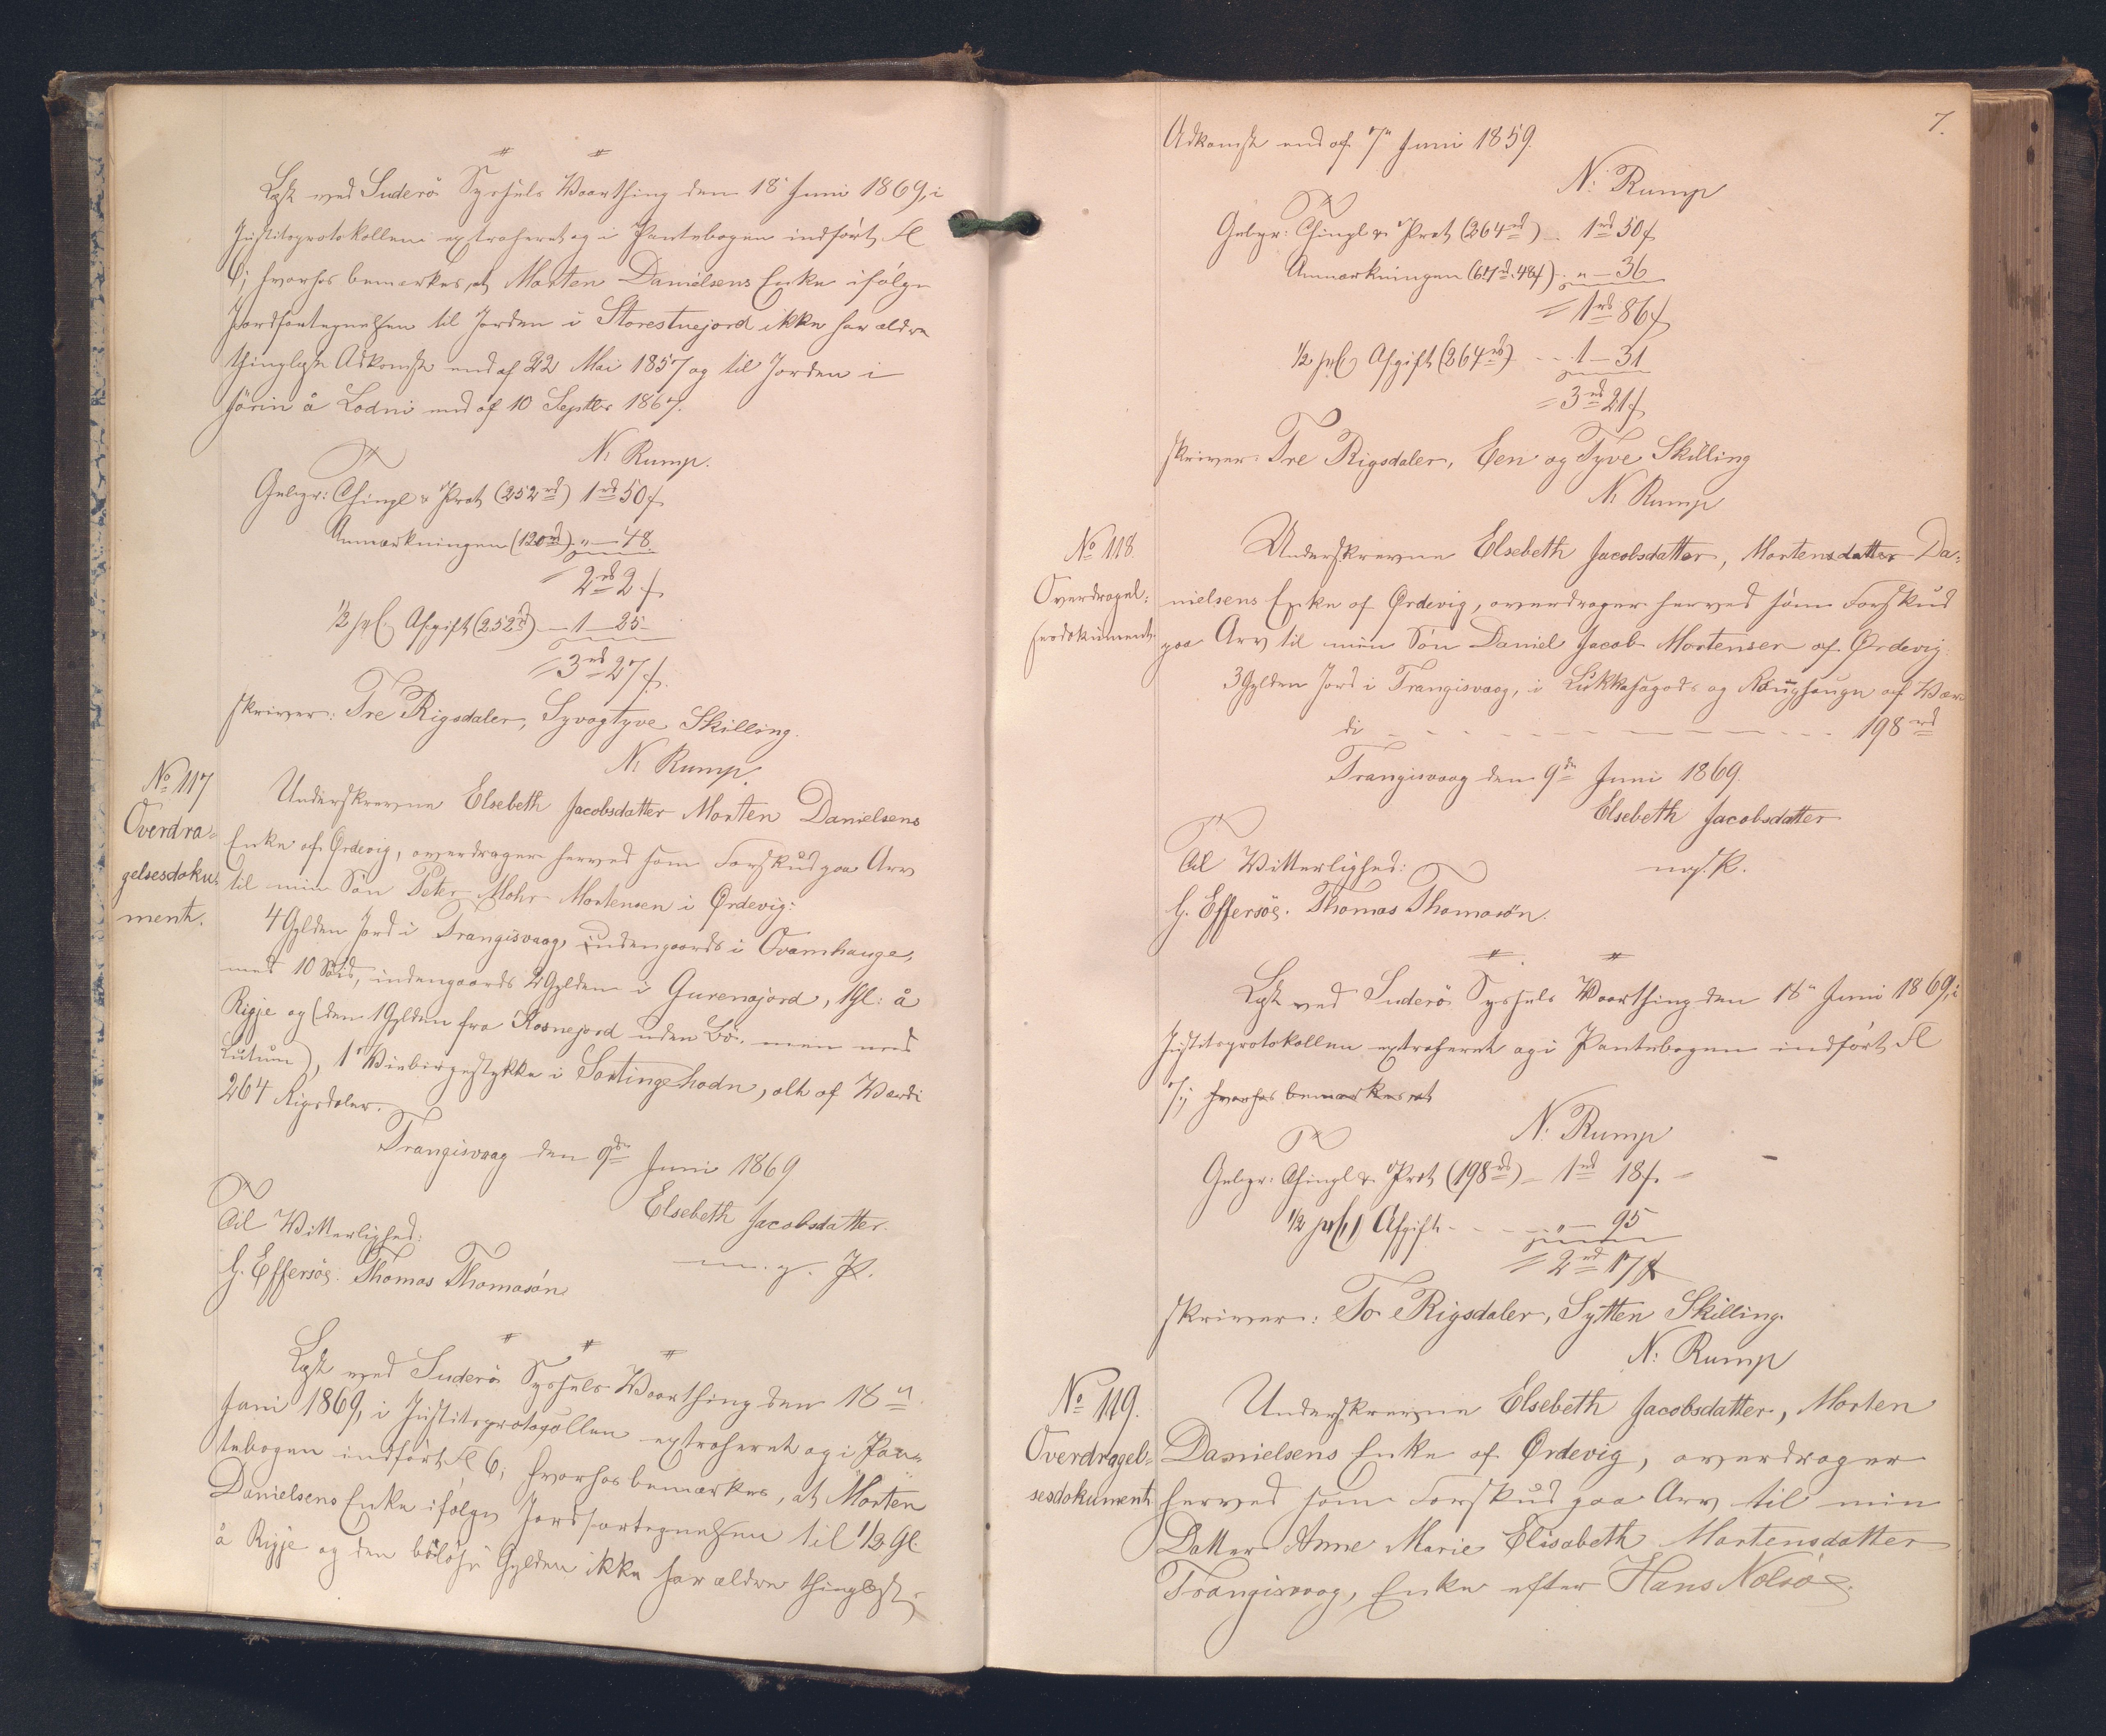 Læst ved Suderö Syssels Vaarthing den 18 Juni 1869, i
Justitsprotokollen extraheret og i Pantebogen indført Fol
6; hvorhos bemærkes, at Morten Danielsens Enke ifølge
Jordfortegnelsen til Jorden i Storestuejord ikke har ældre
thinglæst Adkomst end af 22 Mai 1857 og til Jorden i
å Lodni end af 10 Septbr 1867.
N. Rump.
Gebyr: Thingl & Prot (252 rd) 1 rd 50 s
Anmærkningen (120 rd) " — 48
= 2 rd 2 s
1/2 pCt Afgift (252 rd) — 1 — 25
= 3 rd 27 s.
skriver: Tre Rigsdaler, Syvogtyve Skilling.
N. Rump.
No 117
Overdra-
gelsesdoku-
ment.
Underskrevne Elsebeth Jacobsdatter Morten Danielsens
Enke af Ørdevig, overdrager herved som Forskud paa Arv
til min Søn Peter Mohr Mortensen i Ørdevig:
4 Gylden Jord i Trangisvaag, indengaards i Ovamhauge,
med 10 indengaards 2 Gylden i Gurenajord, 1 Gl: å
Rigje og (den 1 Gylden fra Rosnejord uden Bö, men med
Lutum), 1 Vinbirgestykke i Sortingehodn, alt af Værdi
264 Rigsdaler.
Trangisvaag den 9de Juni 1869
Elsebeth Jacobsdatter.
m. p. P.
Til Vitterlighed:
G. Effersöe. Thomas Thomasön
Læst ved Suderö Syssels Vaarthing den 18
Juni 1869, i Justitsprotocollen extraheret og i Pan-
tebogen indført Fol 6; hvorhos bemærkes, at Morten
Danielsens Enke ifølge Jordfortegnelsen til 1/3 Gl
å Rigje og den bölöse Gylden ikke har ældre thinglæst
7.
Adkomst end af 7 Juni 1859.
N. Rump
Gebyr: Thingl & Prot (264 rd) — 1 rd 50 s
Anmærkningen (61 rd 48 s) " — 36
= 1 rd 86 s
1/2 pCt Afgift (264 rd) — 1 — 31
= 3 rd 21 s
skriver: Tre Rigsdaler, Een og Tyve Skilling
N. Rump
No 118
Overdragel-
sesdokument.
Underskrevne Elsebeth Jacobsdatter, Mortensdatter Da-
nielsens Enke af Ørdevig, overdrager herved som Forskud
paa Arv til min Søn Daniel Jacob Mortensen af Ørdevig
3 Gylden Jord i Trangisvaag, i Lukkasagods og af Vær-
di — 198 rd
Trangisvaag den 9de Juni 1869.
Elsebeth Jacobsdatter
m.p.P.
Til Vitterlighed:
G. Effersöe. Thomas Thomasön.
Læst ved Suderö Syssels Vaarthing den 18 Juni 1869, i
Justitsprotokollen extraheret og i Pantebogen indført Fol
7; hvorhos bemærkes, at
N. Rump
Gebyr: Thingl & Prot (198 rd) — 1 rd 18 s.
1/2 pCt Afgift — " — 95
= 2 rd 17 s
skriver: To Rigsdaler, Sytten Skilling.
N. Rump
No 119.
Overdragel-
sesdokument
Underskrevne Elsebeth Jacobsdatter, Morten
Danielsens Enke af Ørdevig, overdrager
herved som Forskud paa Arv til min
Datter Anne Marie Elisabeth Mortensdatter
Trangisvaag, Enke efter Hans Nolsöe.